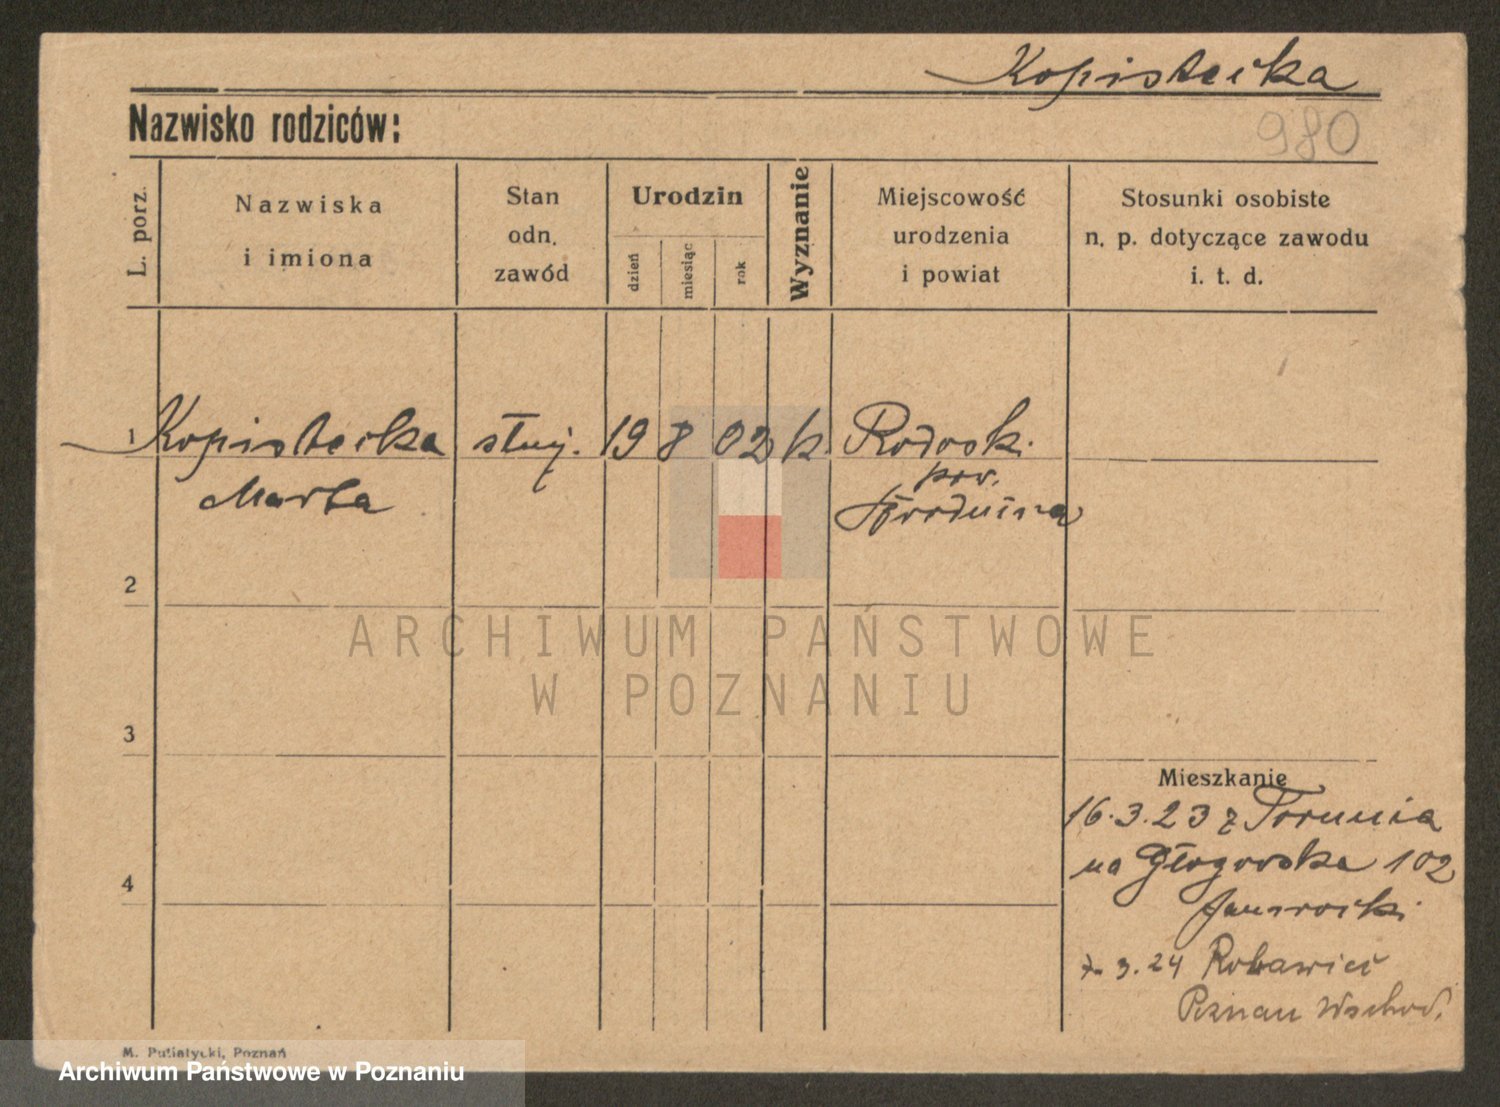 Kopistecka
Nazwisko rodziców:
980
L. porz.
Nazwiska
i imiona
Stan
odn.
zawód
Urodzin
dzień
miesiąc
rok
Wyznanie
Miejscowość
urodzenia
i powiat
Stosunki osobiste
n. p. dotyczące zawodu
i. t. d.
1 Kopistecka służ. 19 8 02 k.
Marta
pow.
2
ARCHIWUM PAŃSTWOWE
W POZNANIU
3
Mieszkanie
16.3.23 z Torunia
4
na Głogowska 102
3.24
Poznań Wschod.
M. Putiatycki, Poznań
Archiwum Państwowe w Poznaniu